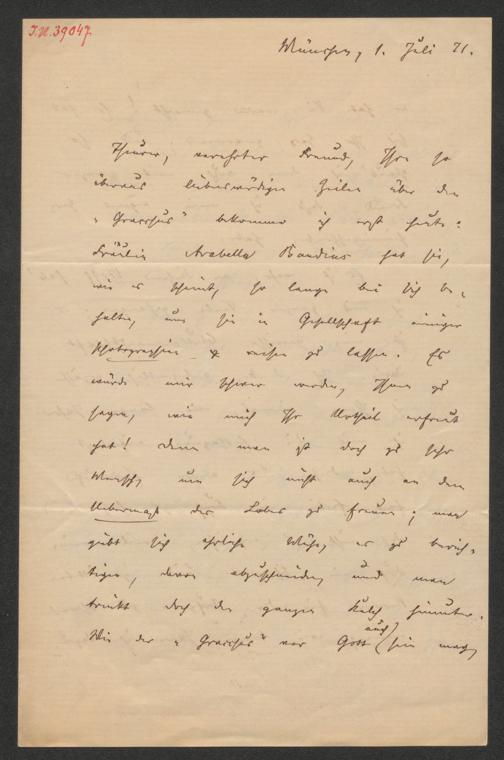 J.N. 39047
München, 1. Juli 71.
Theurer, verehrter Freund, Ihre so
überaus liebenswürdigen Zeilen über den
„Gracchus" bekomme ich erst heute:
Fräulein Arabella Baudius hat sie,
wie es scheint, so lange bei sich be-
halten, um sie in Gesellschaft einiger
Photographien reisen zu lassen. Es
würde mir schwer werden, Ihnen zu
sagen, wie mich Ihr Urtheil erfreut
hat! Denn man ist doch zu sehr
Mensch, um sich nicht auch an dem
Uebermaß des Lobes zu freuen; man
giebt sich ehrliche Mühe, es zu berich-
tigen, davon abzuschneiden, und man
trinkt doch den ganzen Kelch hinunter.
Wie der „Gracchus" vor Gott auch sein mag,